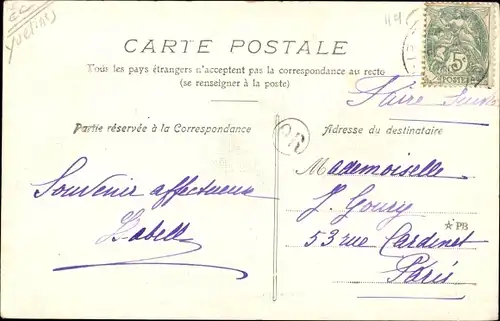 Yvelines
CARTE POSTALE
Tous les pays étrangers n'acceptent pas la correspondance au recto
(se renseigner à la poste)
5c
POSTES
Faire suivre
Partie réservée à la Correspondance
OR
Adresse du destinataire
Souvenir affectueux
Isabelle
Mademoiselle
J. Goury
PB
53 rue Cardinet
Paris